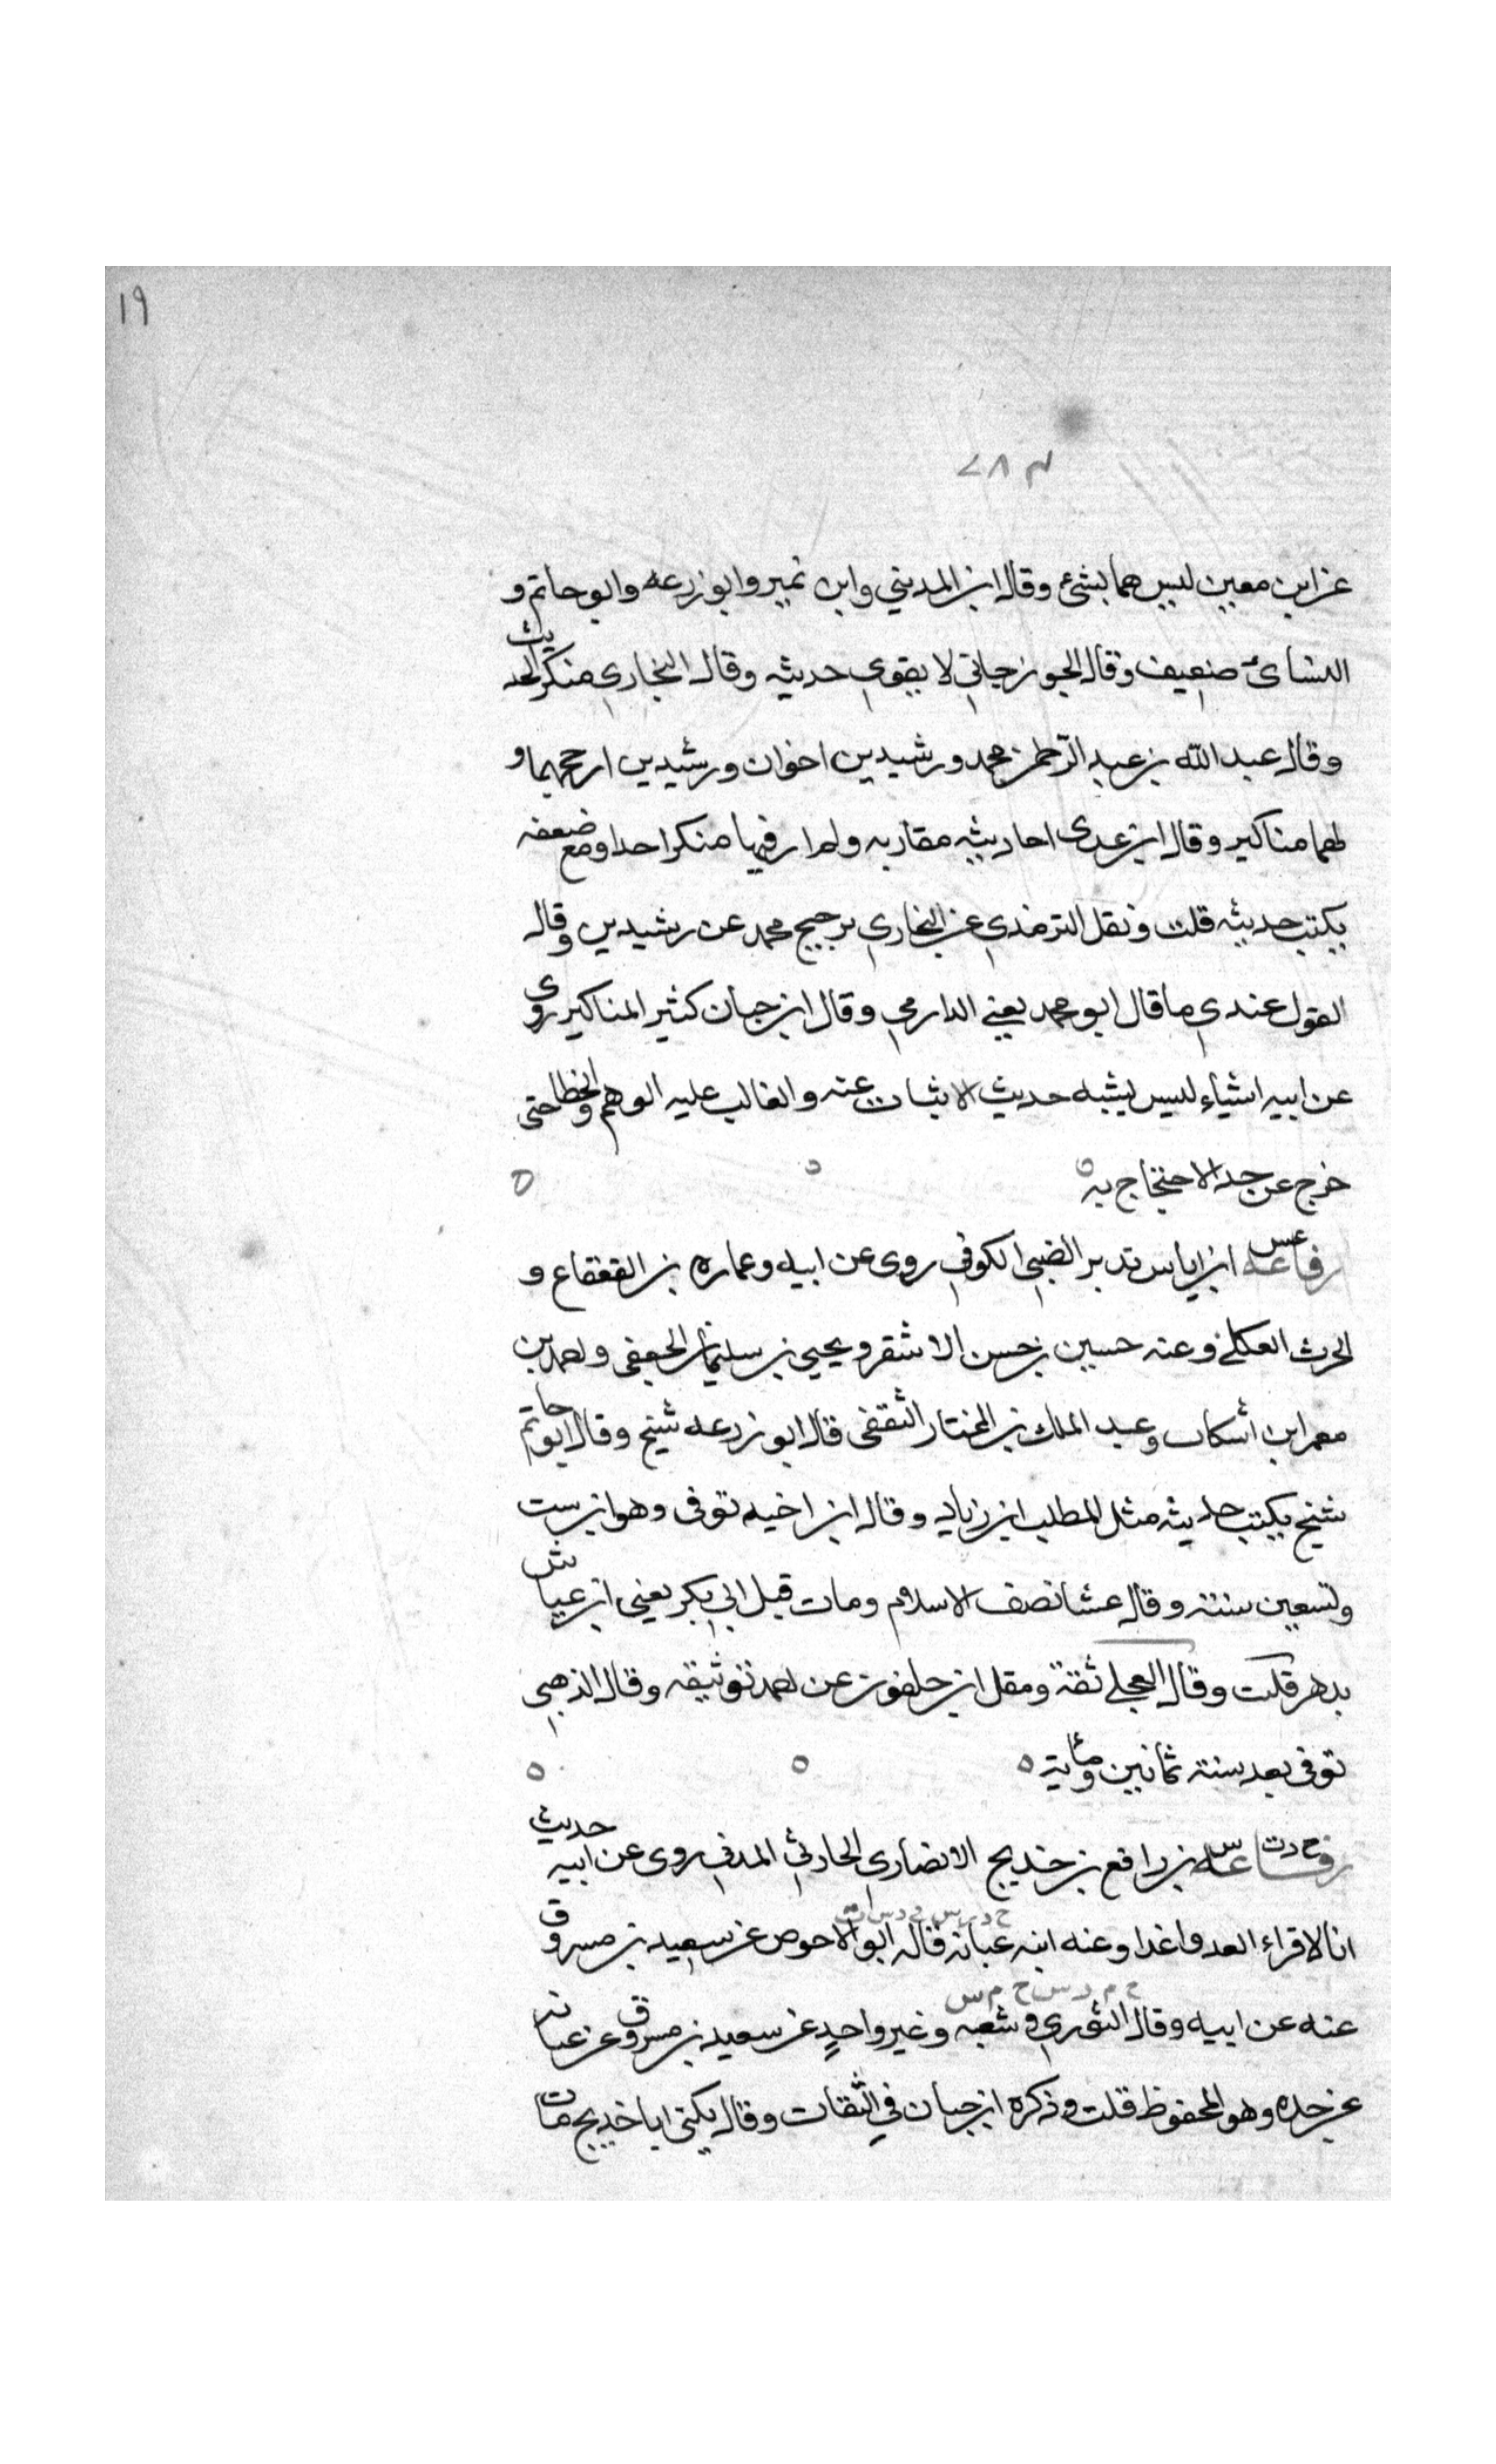 ١٩
٢٨٣
عن ابن معين ليس هما بشئ وقال ابن المديني وابن نمير وابو زرعه وابو حاتم و
النسائ ضعيف وقال الجوزجاني لا يقوي حديثه وقال البخاري منكر الحديث
وقال عبد الله بن عبد الرحمن محمد ورشيدين اخوان ورشيدين ارجحهما و
لهما مناكير وقال ابن عدى احاديثه مقاربه ولم ار فيها منكرا حدا ومع ضعفه
يكتب حديثه قلت ونقل الترمذي عن البخاري ترجيح محمد عن رشيدين وقال
القول عندي ما قال ابو محمد يعني الدارمي وقال ابن حبان كثير المناكير روى
عن ابيه اشياء ليس يشبه حديث الاثبات عنه والغالب عليه الوهم والخطا حتى
خرج عن حد الاحتجاج به
عس
رفاعه ابن اياس بن نذير الضبي الكوفي روى عن ابيه وعماره بن القعقاع و
الحرث العكلي وعنه حسين بن حسن الاشقر ويحيى بن سليمان الجعفى واحمد بن
معمر ابن أشكاب وعبد الملك بن المختار الثقفى قال ابو زرعه شيخ وقال ابو حاتم
شيخ يكتب حديثه مثل المطلب ابن زياد وقال ابن اخيه توفى وهو ابن ست
وتسعين سنة وقال عشنا نصف الاسلام ومات قبل ابي بكر يعني ابن عياش
بدهر قلت وقال العجلي ثقة ونقل ابن خلفون عن احمد توثيقه وقال الذهبي
توفى بعد سنة ثمانين ومأية
خ د ت س
رفاعه بن رافع بن خديج الانصاري الحارثي المدني روى عن ابيه حديث
انا لاقراء العدو غدا وعنه ابنه عبايه قاله ابو الاحوص عن سعيد بن مسروق
عنه عن ابيه وقال الثوري وشعبه وغير واحدٍ عن سعيد بن مسروق عن عبايه
عن جده وهو المحفوظ قلت وذكره ابن حبان في الثقات وقال يكنى ابا خديج مات